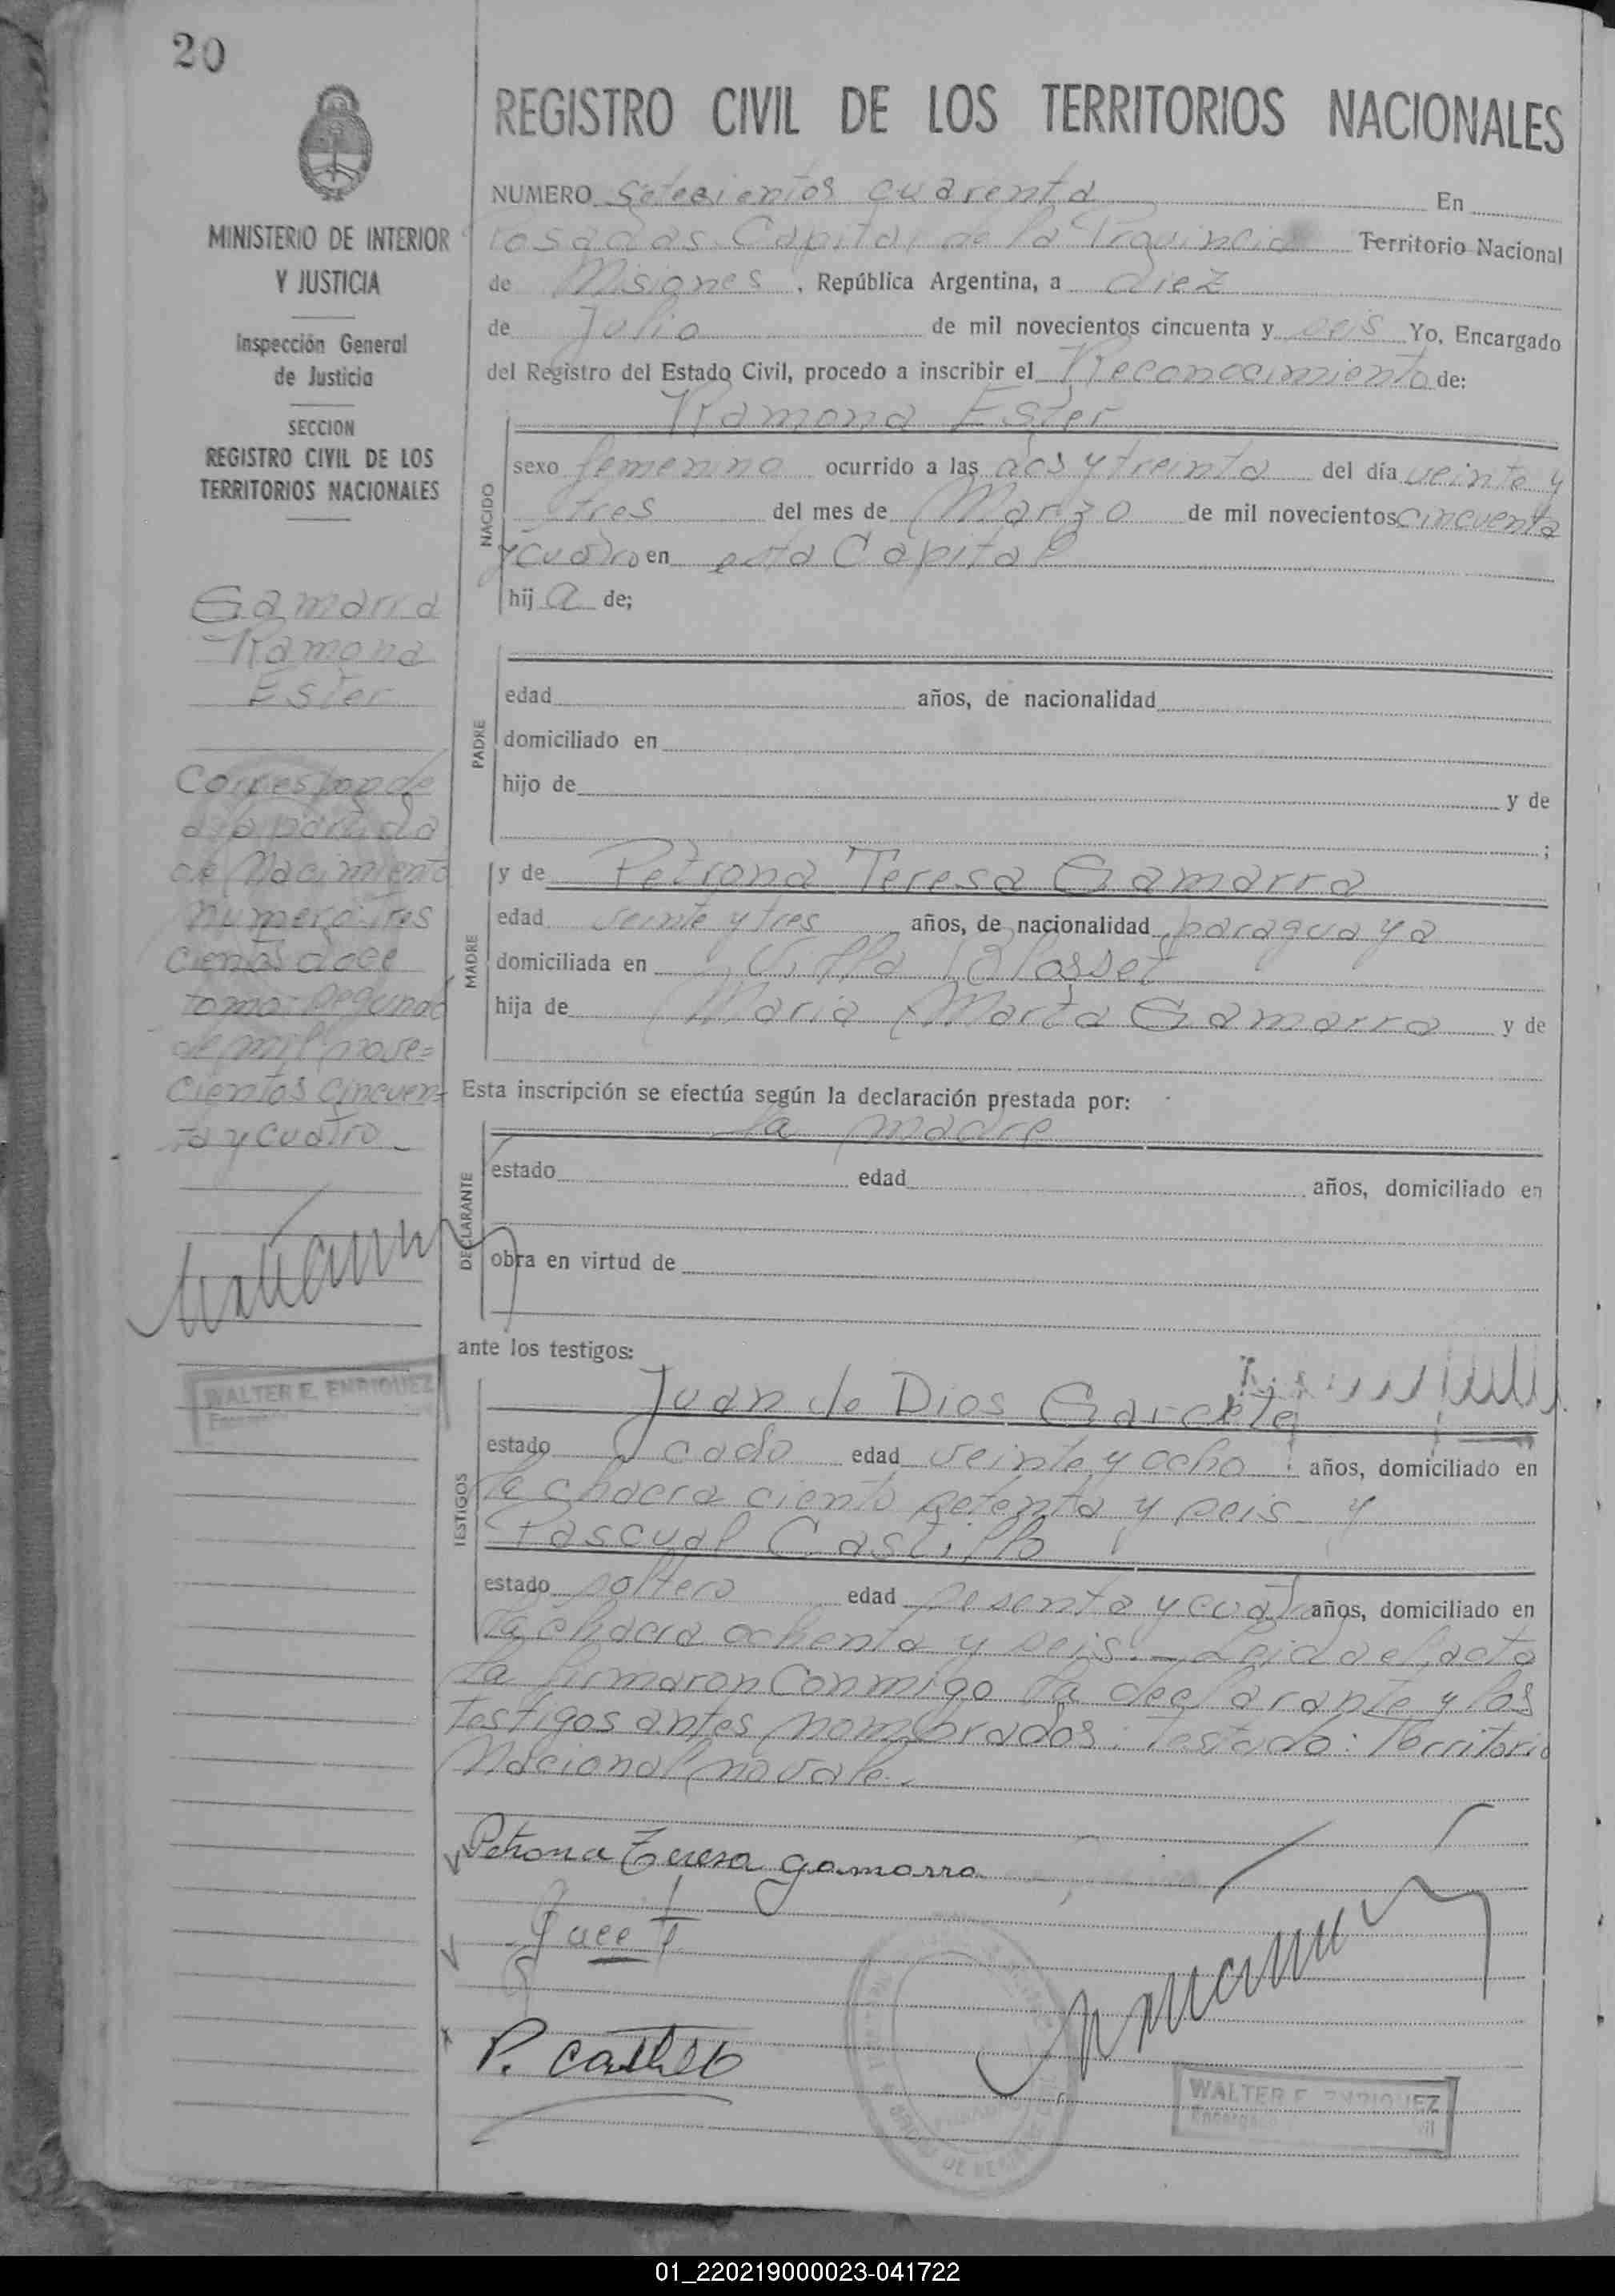 20
REGISTRO CIVIL DE LOS TERRITORIOS NACIONALES
MINISTERIO DE INTERIOR
Y JUSTICIA
Inspección General
de Justicia
SECCION
REGISTRO CIVIL DE LOS
TERRITORIOS NACIONALES
Gamarra
Ramona
Ester
Corresponde
a la partida
de Nacimiento
numero tres
cientos doce
tomo segundo
de mil nove=
cientos cincuen-
ta y cuatro
WALTER E. ENRIQUEZ
NUMERO setecientos cuarenta En
Posadas Capital de la Provincia Territorio Nacional
de Misiones, República Argentina, a diez
de Julio de mil novecientos cincuenta y seis Yo, Encargado
del Registro del Estado Civil, procedo a inscribir el Reconocimiento de:
Ramona Ester
NACIDO
sexo femenino ocurrido a las dos y treinta del día veinte y
tres del mes de Marzo de mil novecientos cincuenta
y cuatro en esta Capital
hij a de;
PADRE
edad años, de nacionalidad
domiciliado en
hijo de y de
;
MADRE
y de Petrona Teresa Gamarra
edad veinte y tres años, de nacionalidad paraguaya
domiciliada en Villa Blosset
hija de Maria Marta Gamarra y de
Esta inscripción se efectúa según la declaración prestada por:
la madre
DECLARANTE
estado edad años, domiciliado en
obra en virtud de
ante los testigos:
TESTIGOS
Juan de Dios Garcete
estado casado edad veinte y ocho años, domiciliado en
la chacra ciento setenta y seis y
Pascual Castillo
estado soltero edad sesenta y cuatro años, domiciliado en
la chacra ochenta y seis.- Leida el acta
la firmaron conmigo la declarante y los
testigos antes nombrados. Testado: Territorio
Nacional no vale.
Petrona Teresa gamarra
P. Castillo
WALTER E. ENRIQUEZ
Encargado
01_220219000023-041722